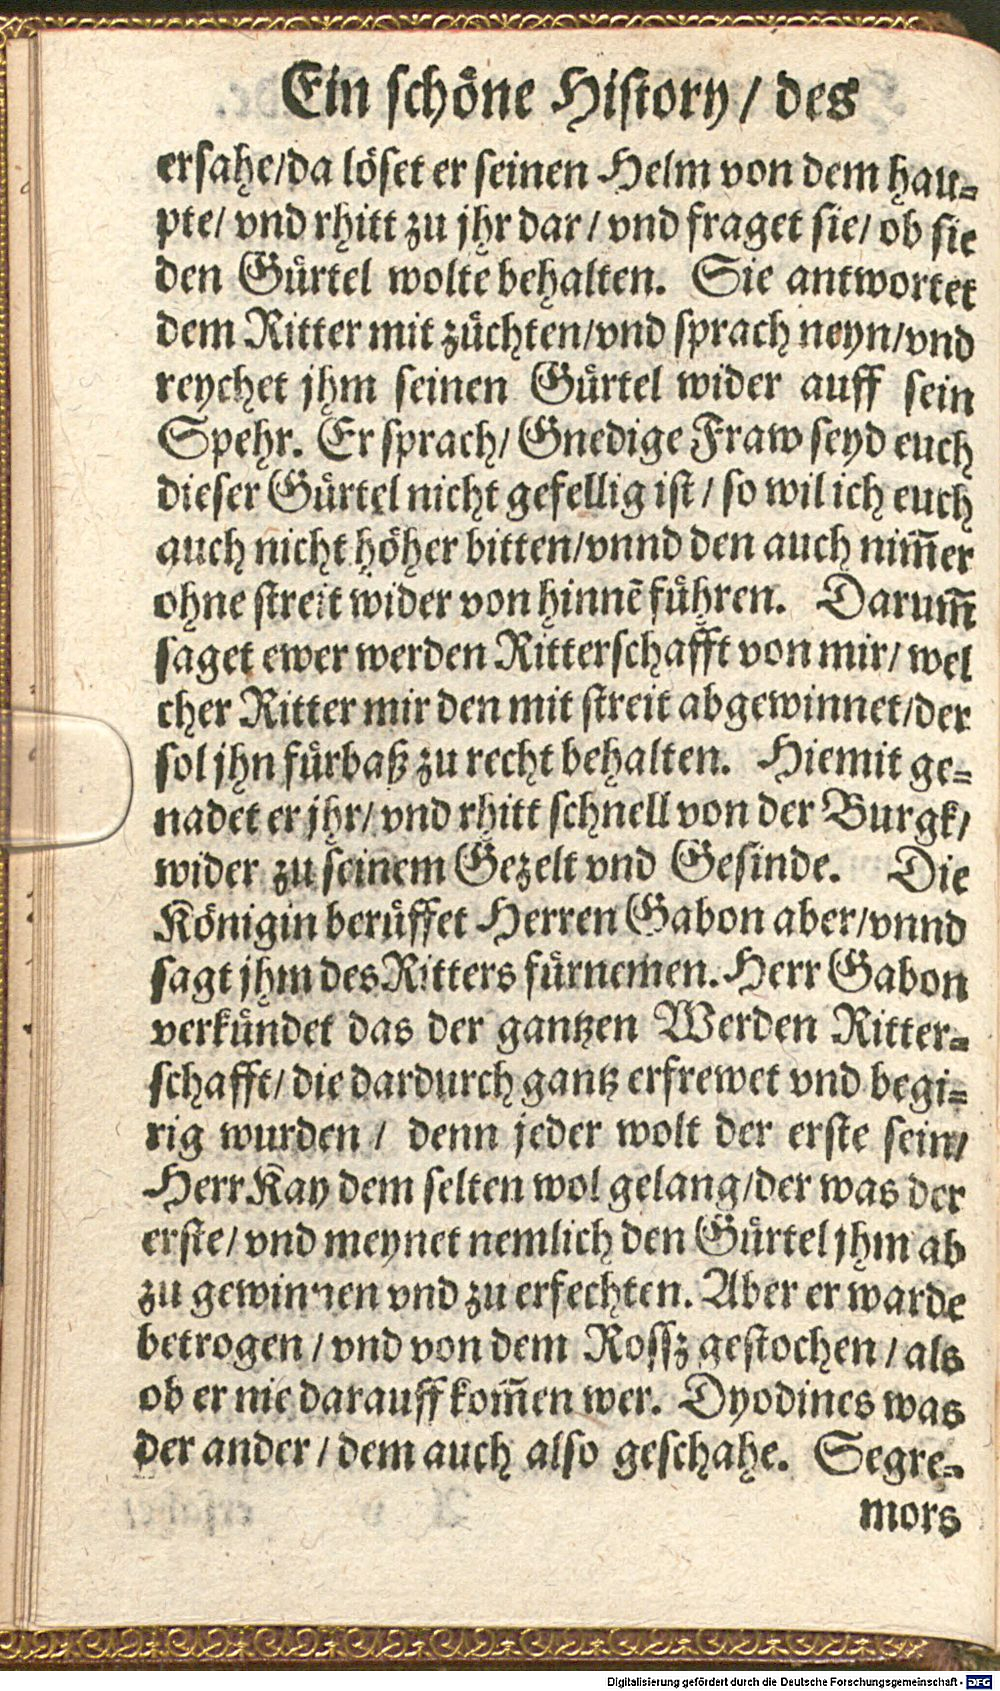 Ein schöne History / des
ersahe/da löset er seinen Helm von dem hau-
pte/ vnd rhitt zu jhr dar / vnd fraget sie/ ob sie
den Gürtel wolte behalten. Sie antwortet
dem Ritter mit züchten/vnd sprach neyn/vnd
reychet jhm seinen Gürtel wider auff sein
Spehr. Er sprach/ Gnedige Fraw seyd euch
dieser Gürtel nicht gefellig ist / so wil ich euch
auch nicht höher bitten/vnnd den auch nim̃er
ohne streit wider von hinnẽ führen. Darum̃
saget ewer werden Ritterschafft von mir/ wel
cher Ritter mir den mit streit abgewinnet/der
sol jhn fürbaß zu recht behalten. Hiemit ge-
nadet er jhr/ vnd rhitt schnell von der Burgk/
wider zu seinem Gezelt vnd Gesinde. Die
Königin berüffet Herren Gabon aber/vnnd
sagt jhm des Ritters fürnemen. Herr Gabon
verkündet das der gantzen Werden Ritter-
schafft/ die dardurch gantz erfrewet vnd begi-
rig wurden / denn jeder wolt der erste sein/
Herr Kay dem selten wol gelang/der was der
erste/ vnd meynet nemlich den Gürtel jhm ab
zu gewinnen vnd zu erfechten. Aber er warde
betrogen / vnd von dem Rossz gestochen / als
ob er nie darauff kom̃en wer. Dyodines was
der ander / dem auch also geschahe. Segre-
mors
Digitalisierung gefördert durch die Deutsche Forschungsgemeinschaft - DFG